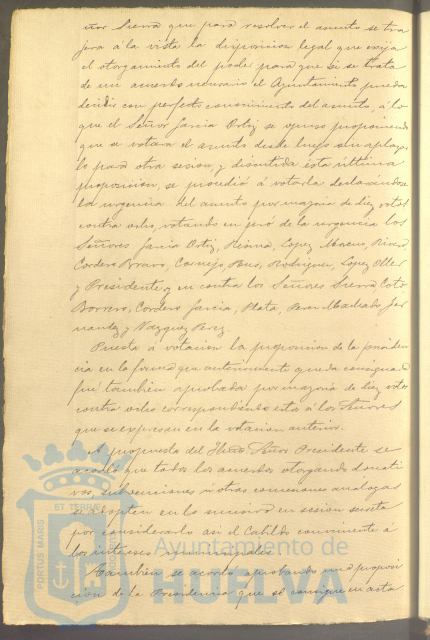 ñor Sierra que para resolver el asunto se tra
jera á la vista la disposicion legal que exija
el otorgamiento del poder para que si se trata
de un acuerdo necesario el Ayuntamiento pueda
decidir con perfecto conocimiento del asunto, á lo
que el Señor Garcia Ortiz se opuso proponiendo
que se votara el asunto desde luego sin aplazar
lo para otra sesion y discutida esta última
proposicion, se procedió á votarla declarándose
la urgencia del asunto por mayoria de diez votos
contra ocho, votando en pró de la urgencia los
Señores Garcia Ortiz, Lopez Rivero
Cordero Bravo, Cornejo, Rus, Rodriguez, Lopez Oller
y Presidente, y en contra los Señores Sierra, Coto
Borrero, Cordero Garcia, Plata, Perez Machado Fer
nandez y Vazquez Perez.
Puesta á votacion la proposicion de la presiden
cia en la forma que anteriormente queda consignada
fué tambien aprobada por mayoria de diez votos
contra ocho correspondiendo estos á los Señores
que se expresan en la votacion anterior.
A propuesta del Señor Presidente se
acordó que todos los acuerdos otorgando donati
vos, subvenciones ú otras concesiones analogas
se adopten en lo sucesivo en sesion secreta
por considerarlo asi el Cabildo conveniente á
los intereses municipales.
Tambien se acordó aprobando una proposi
cion de la Presidencia que se consigne en acta
PORTUS MARIS ET TERRAE
Ayuntamiento de
HUELVA